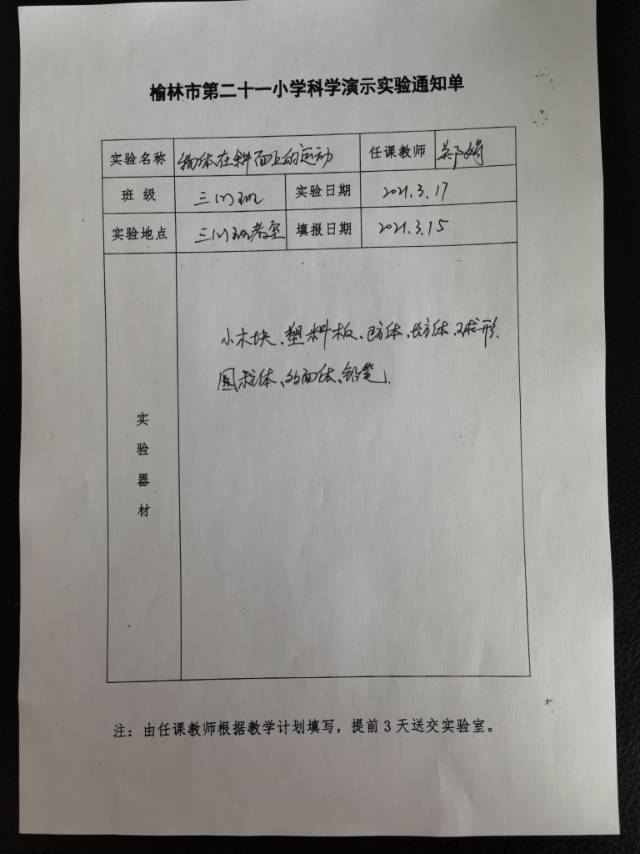 榆林市第二十一小学科学演示实验通知单
实验名称 物体在斜面上的运动 任课教师
班 级 三(1)班 实验日期 2021.3.17
实验地点 三(1)班教室 填报日期 2021.3.15
实验器材
小木块、塑料板、正方体、长方体、球形、
圆柱体、多面体、铅笔.
注：由任课教师根据教学计划填写，提前3天送交实验室。